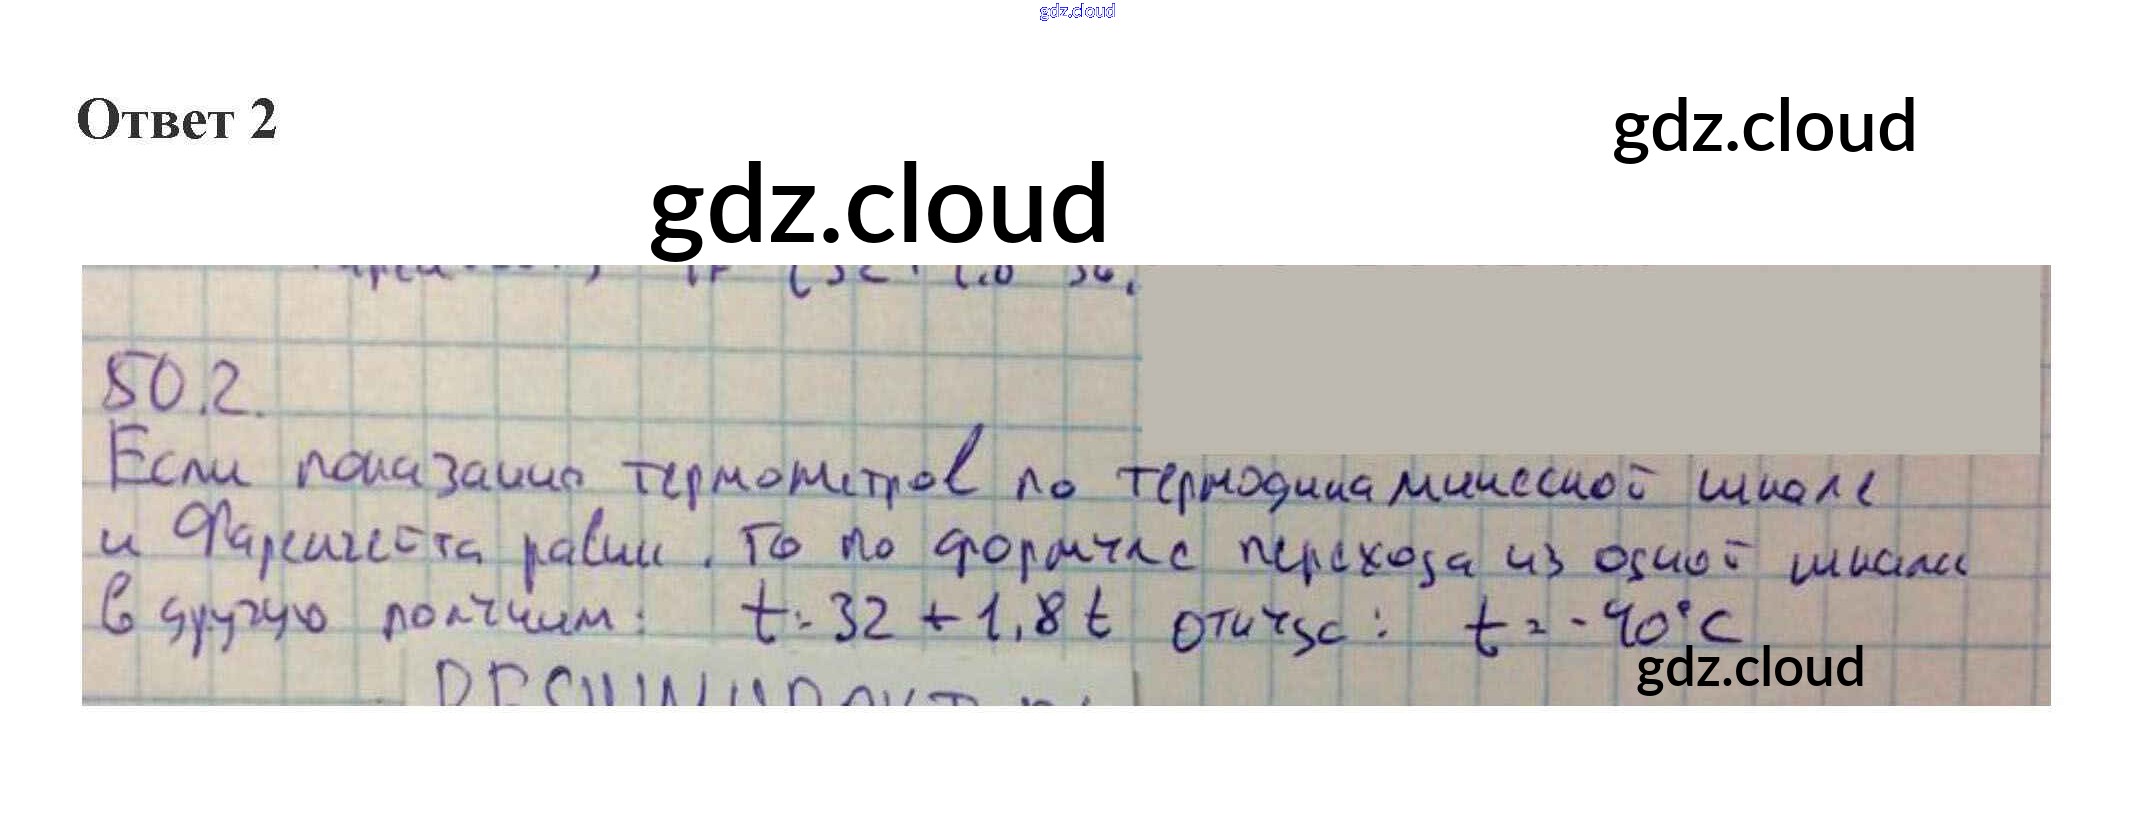 gdz.cloud
Ответ 2
gdz.cloud
gdz.cloud
50.2.
Если показания термометров по термодинамической шкале
и Фаренгейта равны, то по формуле перехода из одной шкалы
в другую получим: t = 32 + 1,8 t откуда: t = -40°C
gdz.cloud